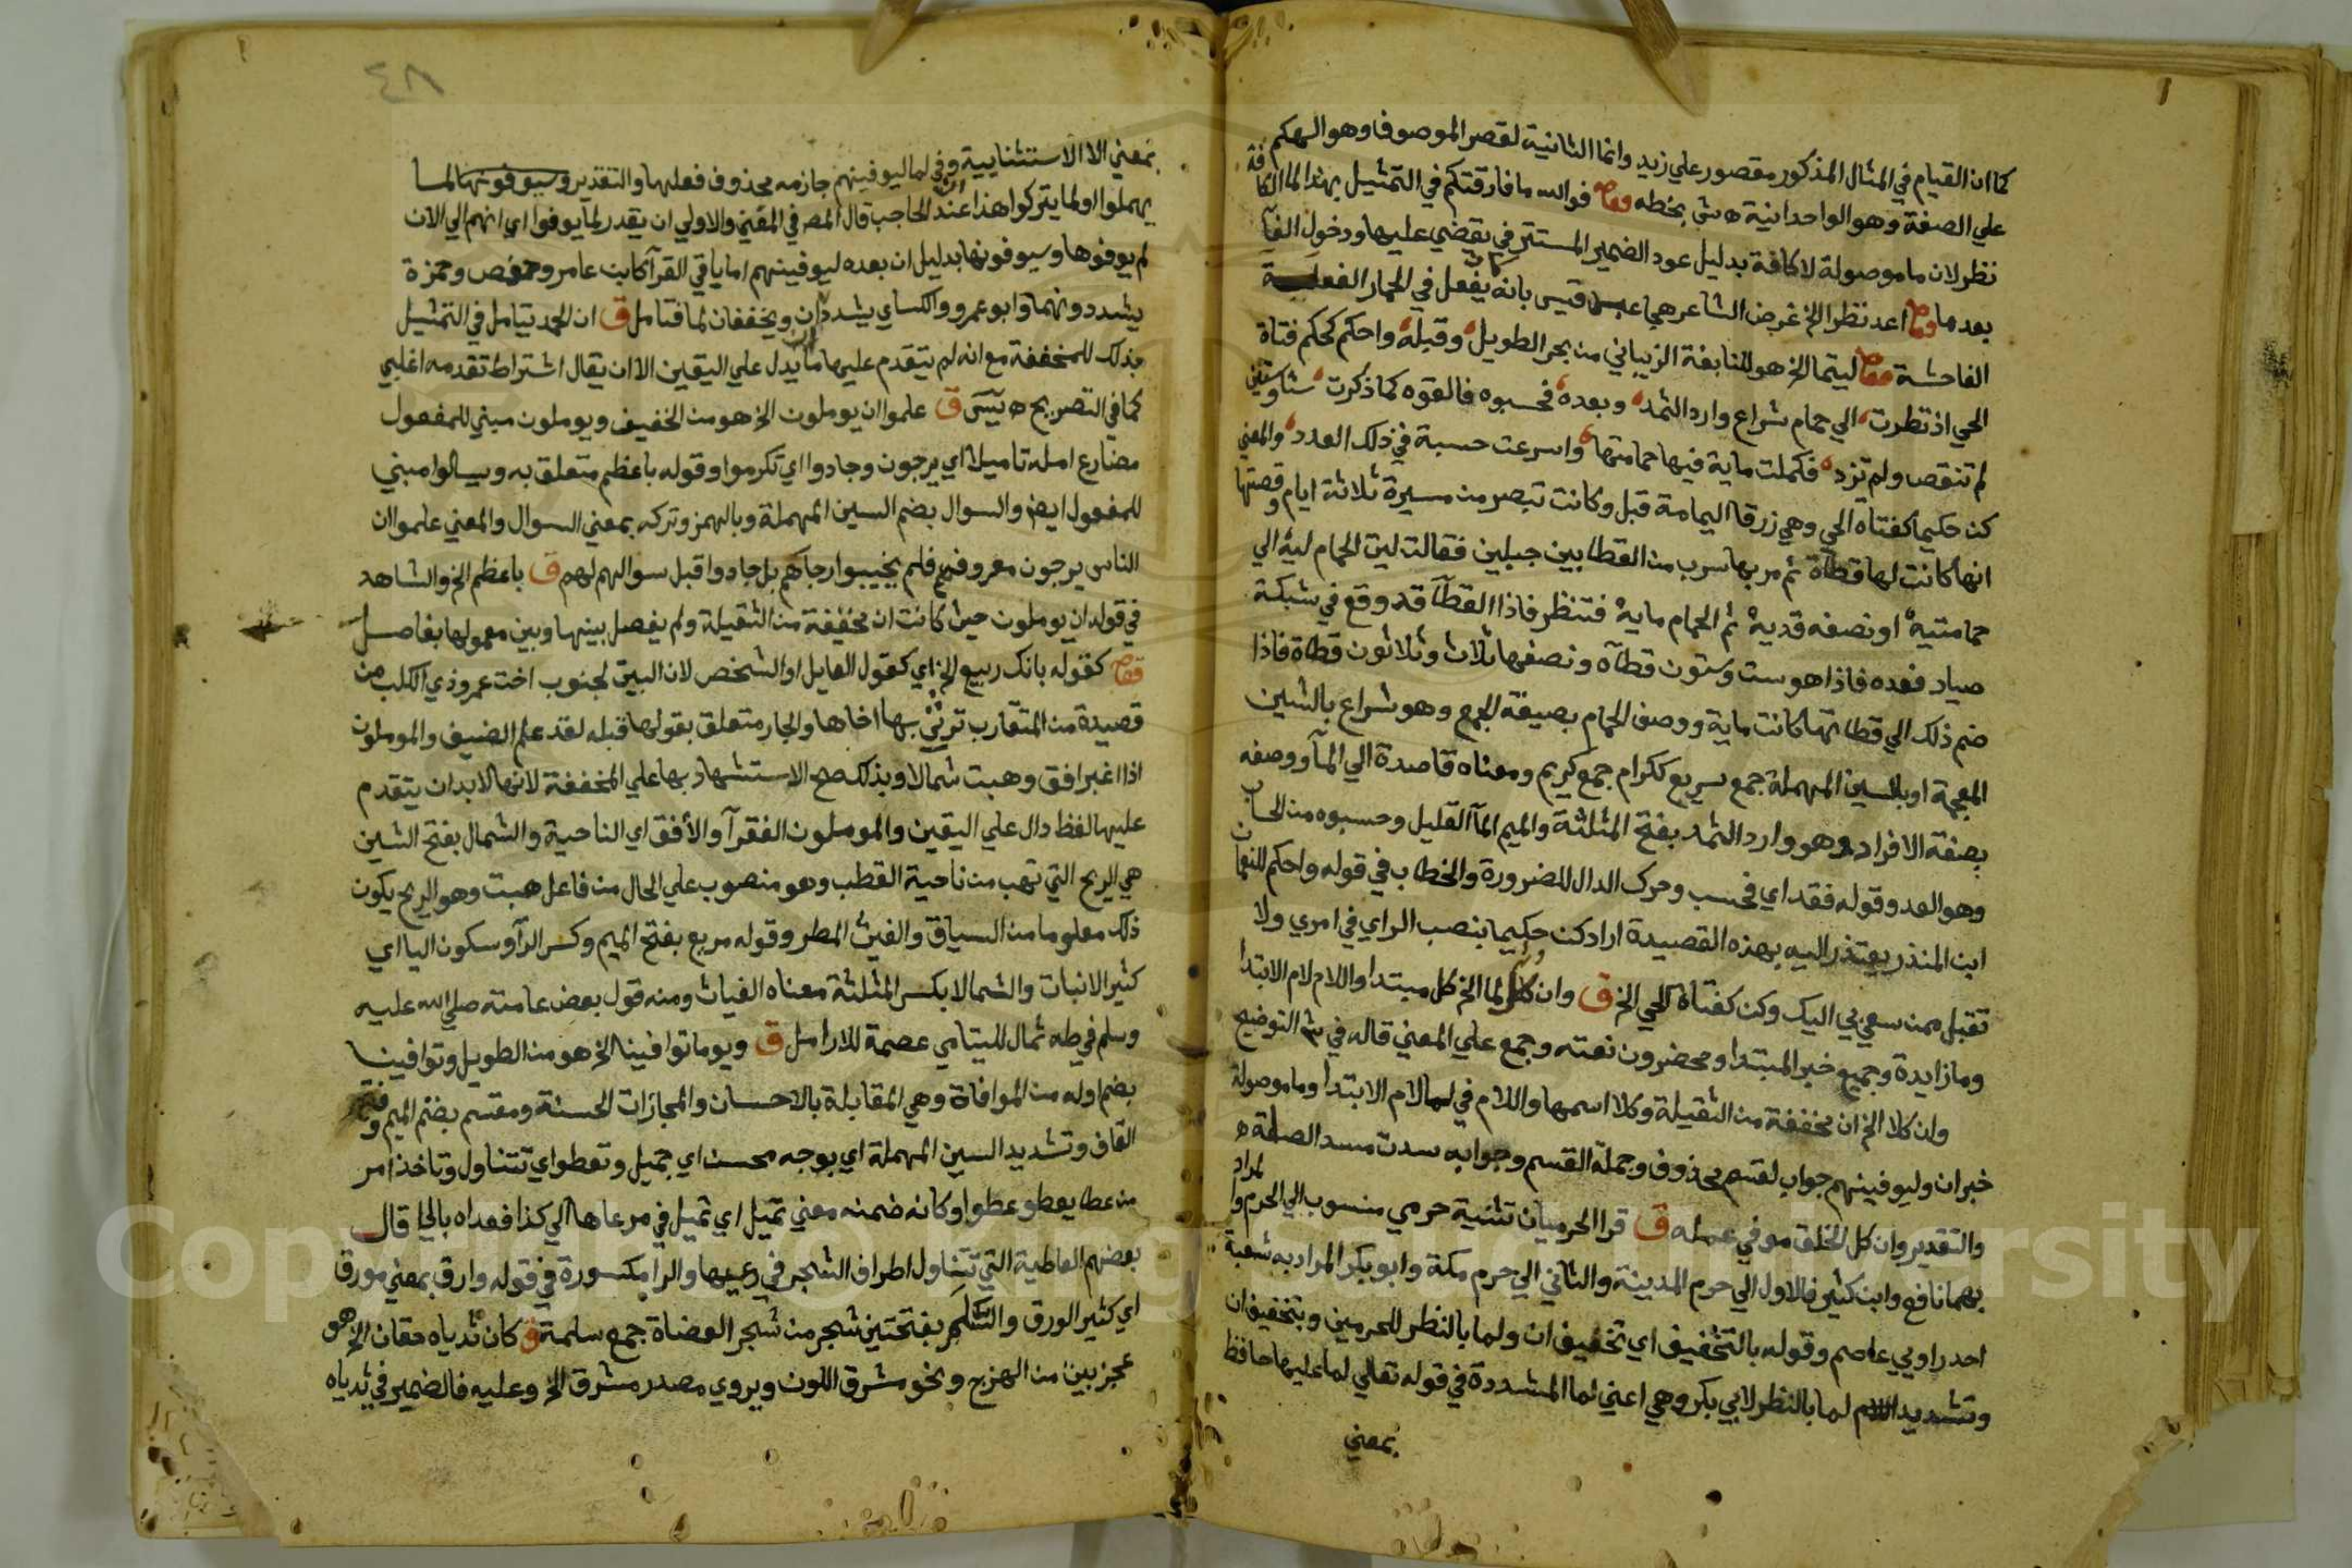 كما ان القيام في المثال المذكور مقصور علي زيد وانما الثانية لقصر الموصوف وهو الهكم
علي الصفة وهو الواحدانية ه ش بخطه وقوله فوالله ما فارقتكم في التمثيل بهذا لما الكافة
نظر لان ما موصولة لا كافة بدليل عود الضمير المستتر في يقضي عليها ودخول الفآ
بعدها وقوله اعد نظرا الخ غرض الشاعر هجي عبد قيس بانه يفعل في الحمار الفعلية
الفاحشة قوله ليتما الخ هو للنابغة الزبياني من بحر الطويل وقبله واحكم كحكم فتاة
الحي اذ نظرت الي حمام شراع وارد الثمد وبعده فحسبوه فالفوه كما ذكرت ستا وستين
لم تنقص ولم تزد فكملت ماية فيها حمامتها واسرعت حسبة في ذلك العدد والمعني
كن حكيما كفتاه الحي وهي زرقا اليمامة قبل وكانت تبصر من مسيرة ثلاثة ايام وقصتها
انها كانت لها قطاة ثم مر بها سرب من القطا بين جبلين فقالت ليت الحمام ليه الي
حمامتيه او نصفه قديه تم الحمام مايه فتنظر فاذا القطآ قد وقع في شبكة
صياد فعده فاذا هو ست وستون قطآه ونصفها ثلاث وثلاثون قطاة فاذا
ضم ذلك الي قطاتها كانت ماية ووصف الحمام بصيغة الجمع وهو شراع بالشين
المعجمة او بالسين المهملة جمع سريع ككرام جمع كريم ومعناه قاصدة الي المآ ووصفه
بصفة الافراد وهو وارد الثمد بفتح المثلثة والميم المآ القليل وحسبوه من الحساب
وهو العد وقوله فقد اي فحسب وحرك الدال للضرورة والخطاب في قوله واحكم للنعمان
ابن المنذر يعتذر اليه بهذه القصيدة اراد كن حكيما بنصب الراي في امري ولا
تقبل ممن سعي بي اليك وكن كفتاة الحي الخ ق وان كل لما الخ كل مبتدا واللام لام الابتدا
وما زايدة وجميع خبر المبتدا ومحضرون نعته وجمع علي المعني قاله في ش التوضيح
وان كلا الخ ان مخففة من الثقيلة وكلا اسمها واللام في لما لام الابتدا وما موصولة
خبر ان وليوفينهم جواب لقسم محذوف وجملة القسم وجوابه سدت مسد الصلة ه
والتقدير وان كل الخلق موفي عمله ق قرا الحرميان تثنية حرمي منسوب الي الحرم والمراد
بهما نافع وابن كثير فالاول الي حرم المدينة والثاني الي حرم مكة وابو بكر المراد به شعبة
احد راويي عاصم وقوله بالتخفيف اي تخفيف ان ولما بالنظر للحرمين وبتخفيف ان
وتشديد اللام لما بالنظر لابي بكر وهي اعني لما المشددة في قوله تعالي لما عليها حافظ
بمعني
٨٤
بمعني الا الاستثنايية وفي لما ليوفينهم جازمه محذوف فعلها والتقدير وسيوفونها لما
يهملوا او لما يتركوا هذا عند ابن الحاجب قال المص في المغني والاولي ان يقدر لما يوفوا اي انهم الي الان
لم يوفوها وسيوفونها بدليل ان بعده ليوفينهم اما باقي القرآ كابن عامر وحفص وحمزة
يشددونهما وابو عمرو والكساي يشددان ان ويخففان لما فتامل ق ان الحمد تيامل في التمثيل
بذلك للمخففة مع انه لم يتقدم عليها ما يدل علي اليقين الا ان يقال اشتراط تقدمه اغلبي
كما في التصريح ه يسَ ق علموا ان يوملون الخ هو من الخفيف ويوملون مبني للمفعول
مضارع امله تاميلا اي يرجون وجادوا اي تكرموا وقوله باعظم متعلق به وسيالوا مبني
للمفعول ايضا والسوال بضم السين المهملة وبالهمز وتركه بمعني السوال والمعني علموا ان
الناس يرجون معروفهم فلم يخيبوا رجاهم بل جادوا قبل سوالهم لهم ق باعظم الخ والشاهد
في قوله ان يوملون حيث كانت ان مخففة من الثقيلة ولم يفصل بينها وبين معمولها بفاصل
قوله كقوله بانك ربيع الخ اي كقول القايل او الشخص لان البيت لجنوب اخت عمرو ذي الكلب من
قصيدة من المتقارب ترثي بها اخاها والجار متعلق بقولها قبله لقد علم الضيف والموملون
اذا اغبر افق وهبت شمالا وبذلك صح الاستشهاد بها علي المخففة لانها لابد ان يتقدم
عليها لفظ دال علي اليقين والموملون الفقرآ والأفق اي الناحية والشمال بفتح الشين
هي الريح التي تهب من ناحية القطب وهو منصوب علي الحال من فاعل هبت وهو الريح يكون
ذلك معلوما من السياق والغيث المطر وقوله مريع بفتح الميم وكسر الرآ وسكون اليا اي
كثير الانبات والثمالا بكسر المثلثة معناه الغياث ومنه قول بعض عامته صلي الله عليه
وسلم في طه ثمال لليتامي عصمة للارامل ق ويوما توافينا الخ هو من الطويل وتوافينا
بضم اوله من الموافاة وهي المقابلة بالاحسان والمجازات الحسنة ومقسم بضم الميم وفتح
القاف وتشديد السين المهملة اي بوجه محسن اي جميل وتعطو اي تتناول وتاخذ امر
من عطا يعطو عطوا وكانه ضمنه معني تميل اي تميل في مرعاها الي كذا فعداه بالي قال
بعضهم العاطية التي تتناول اطراف الشجر في رعيها والرا مكسورة في قوله وارق بمعني مورق
اي كثير الورق والسَّلَم بفتحتين شجر من شجر العضاة جمع سلمة ق كان ثدياه حقان الخ هو
عجز بيت من الهزج ونحو مشرق اللون ويروي مصدر مشرق الخ وعليه فالضمير في ثدياه
Copyright © King Saud University